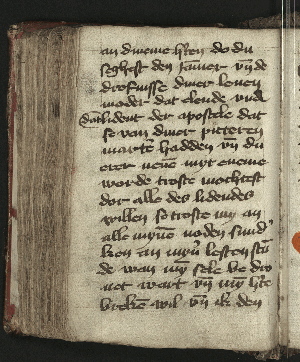 an dineme hten do du
seghest den iamer vn de
drofnisse diner leuen
moder dat elende vnd
dat lident der apostele dat
se van diner pitteren
marte hadden vn du
erer mit eneme
worde troste mochtest
dor alle des lidendes
willen so troste my an
alle myne noden sund'
ken an myn lesten stu
de wan my sele be dro
uet wert vn my hte
breken wil vn ik den